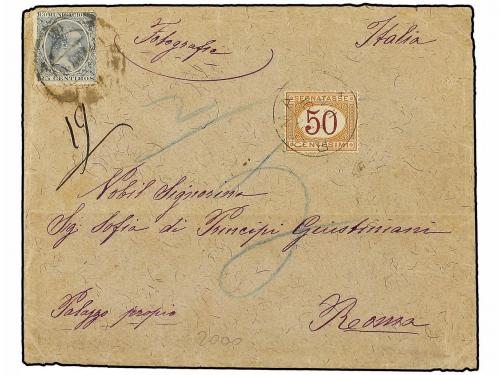 COMUNICACIONES
25 CENTIMOS
Fotografia
Italia
SEGNATASSE
50
CENTESIMI
19
Nobil Signorina
Sg: Sofia di Principi Giustiniani
Palazzo propio
Roma
2000